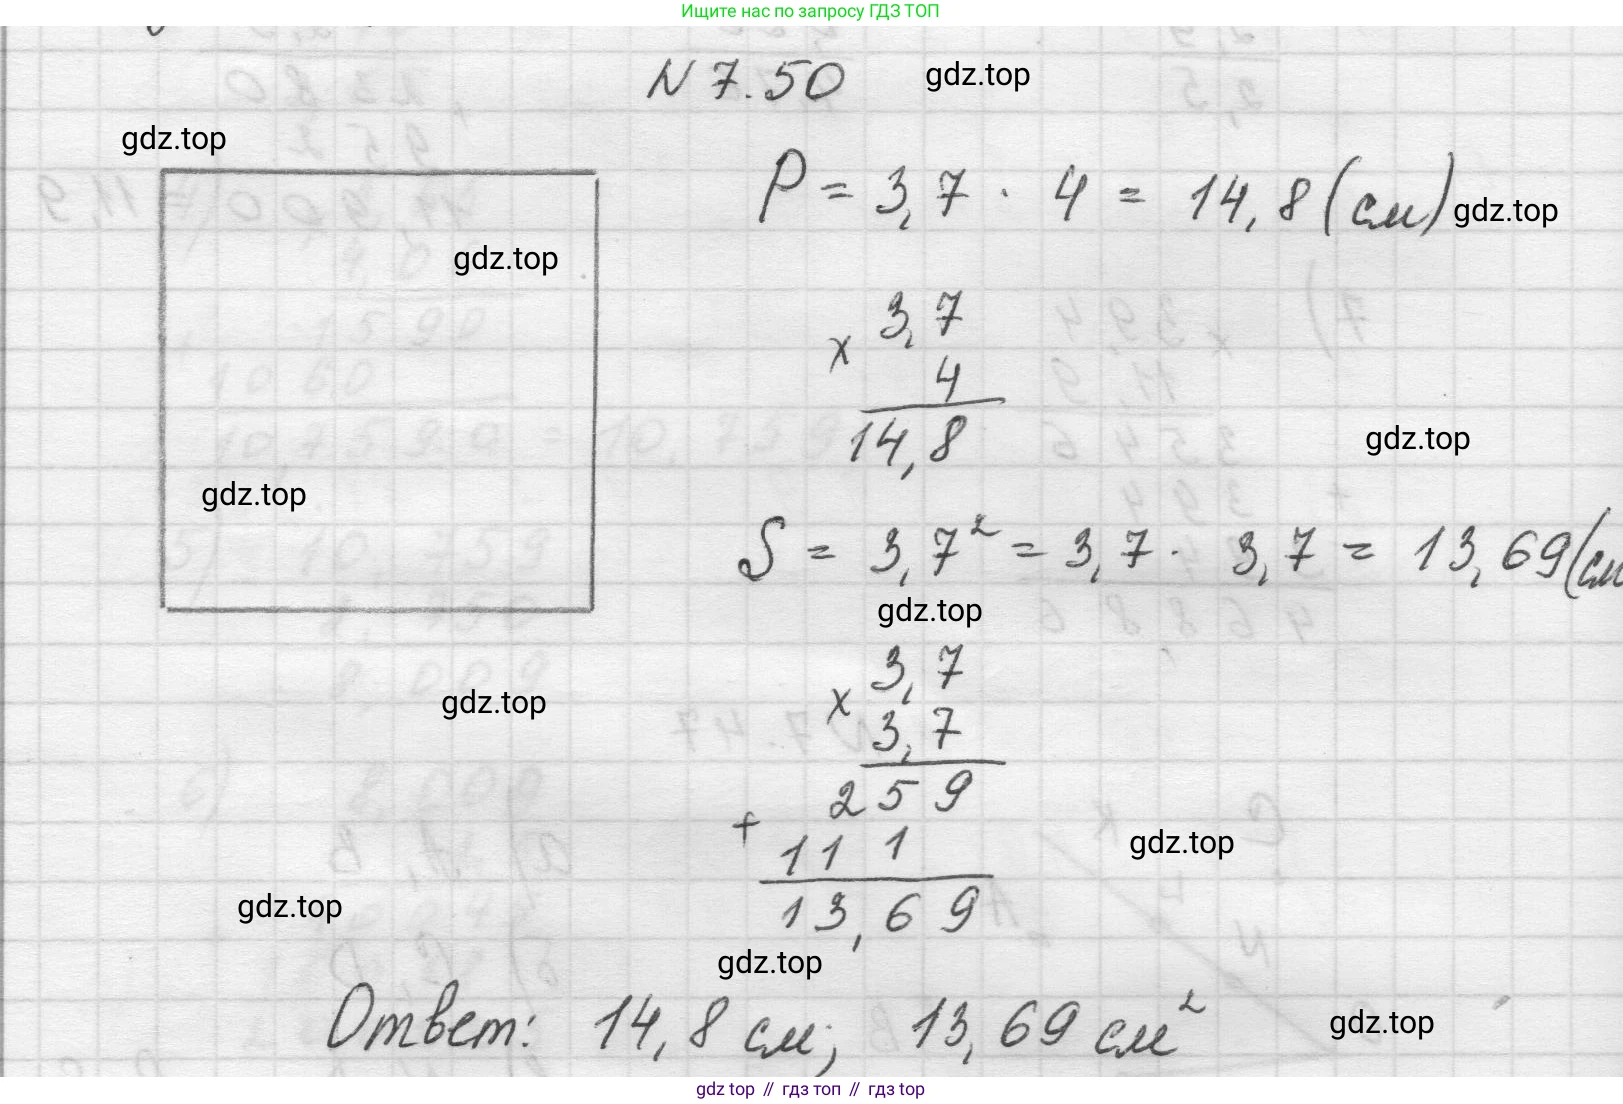 Ищите нас по запросу ГДЗ ТОП
N 7.50
gdz.top
gdz.top
P = 3,7 · 4 = 14,8 (см)
gdz.top
gdz.top
x 3,7
4
14,8
gdz.top
gdz.top
S = 3,7² = 3,7 · 3,7 = 13,69 (см
gdz.top
x 3,7
3,7
gdz.top
259
+
111
gdz.top
13,69
gdz.top
gdz.top
Ответ: 14,8 см; 13,69 см²
gdz.top
gdz top // гдз топ // gdz top